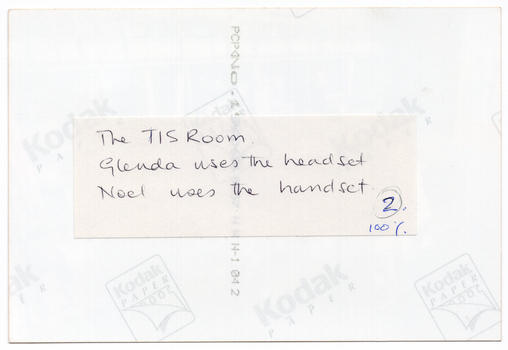 The TIS Room.
Glenda uses the headset
Noel uses the handset.
2.
100%.
Kodak
PAPER
Kodak
PAPER
Kodak
PAPER
Kodak
PAPER
Kodak
PAPER
Kodak
PAPER